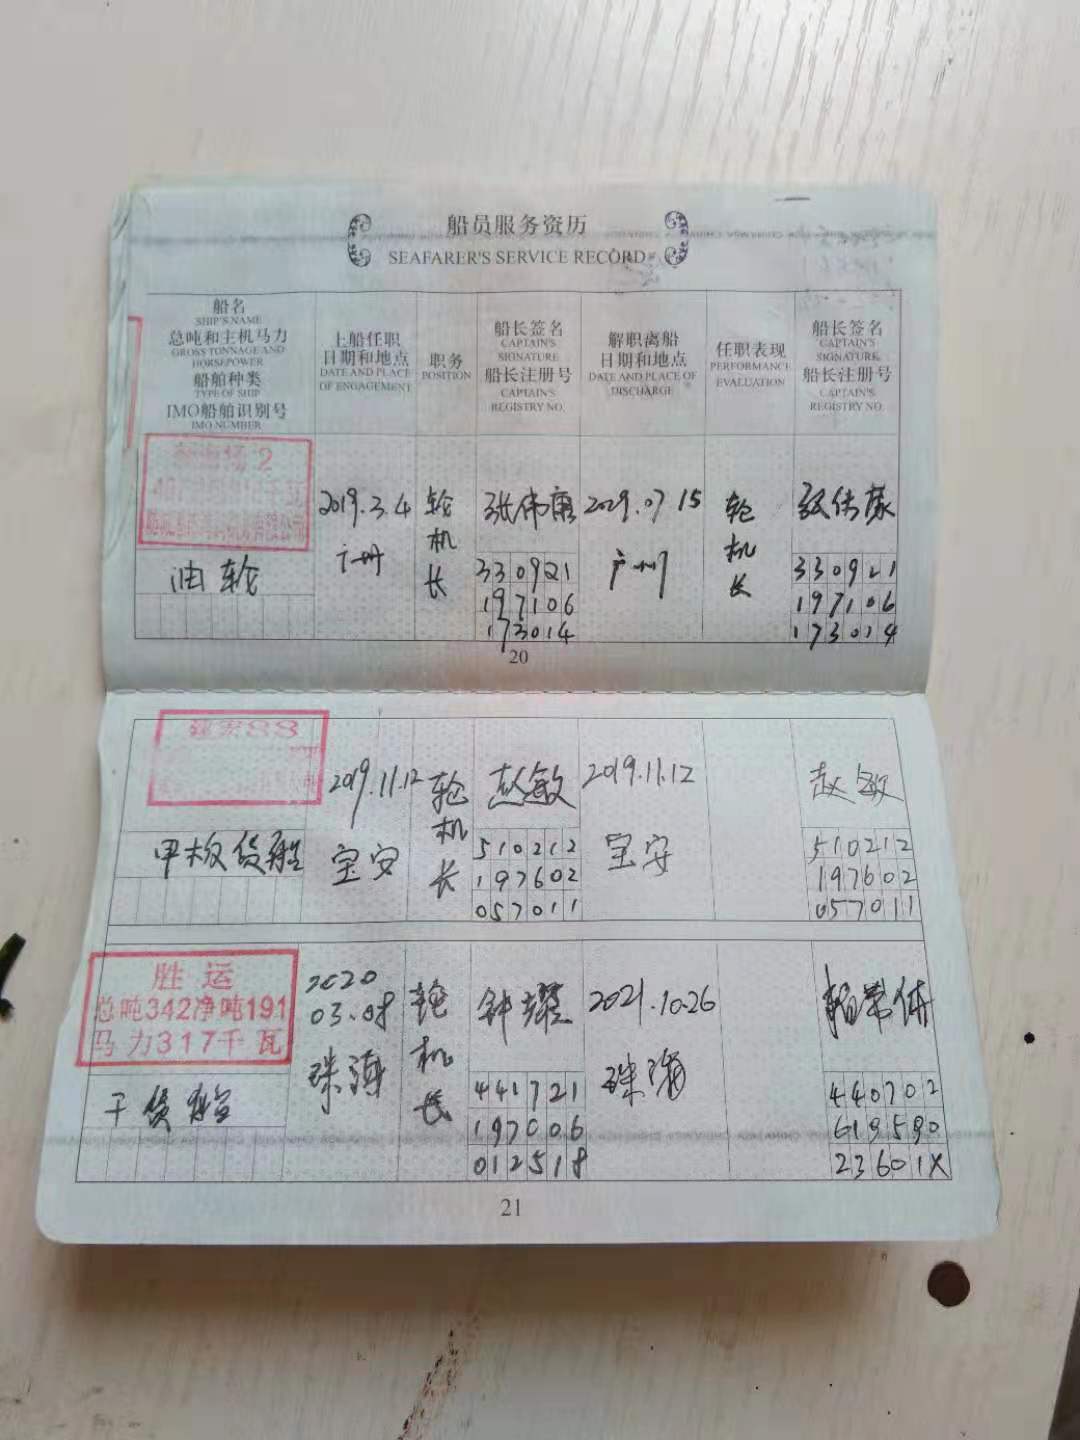 船员服务资历
SEAFARER'S SERVICE RECORD
船名
SHIP'S NAME
总吨和主机马力
GROSS TONNAGE AND
HORSEPOWER
船舶种类
TYPE OF SHIP
IMO船舶识别号
IMO NUMBER
上船任职
日期和地点
DATE AND PLACE
OF ENGAGEMENT
职务
POSITION
船长签名
CAPTAIN'S
SIGNATURE
船长注册号
CAPTAIN'S
REGISTRY NO.
解职离船
日期和地点
DATE AND PLACE OF
DISCHARGE
任职表现
PERFORMANCE
EVALUATION
船长签名
CAPTAIN'S
SIGNATURE
船长注册号
CAPTAIN'S
REGISTRY NO.
油轮
2019.3.4
广州
轮机长
张伟康
330921
197106
173014
2029.07 15
广州
轮机长
330921
197106
173014
20
建宏88
甲板货船
2019.11.12
宝安
轮机长
赵敏
510212
197602
057011
2019.11.12
宝安
赵敏
510212
197602
057011
胜运
总吨342净吨191
马力317千瓦
干货船
2020
03.08
珠海
轮机长
钟耀
441721
197006
012518
2021.10.26
珠海
440702
619590
23601X
21